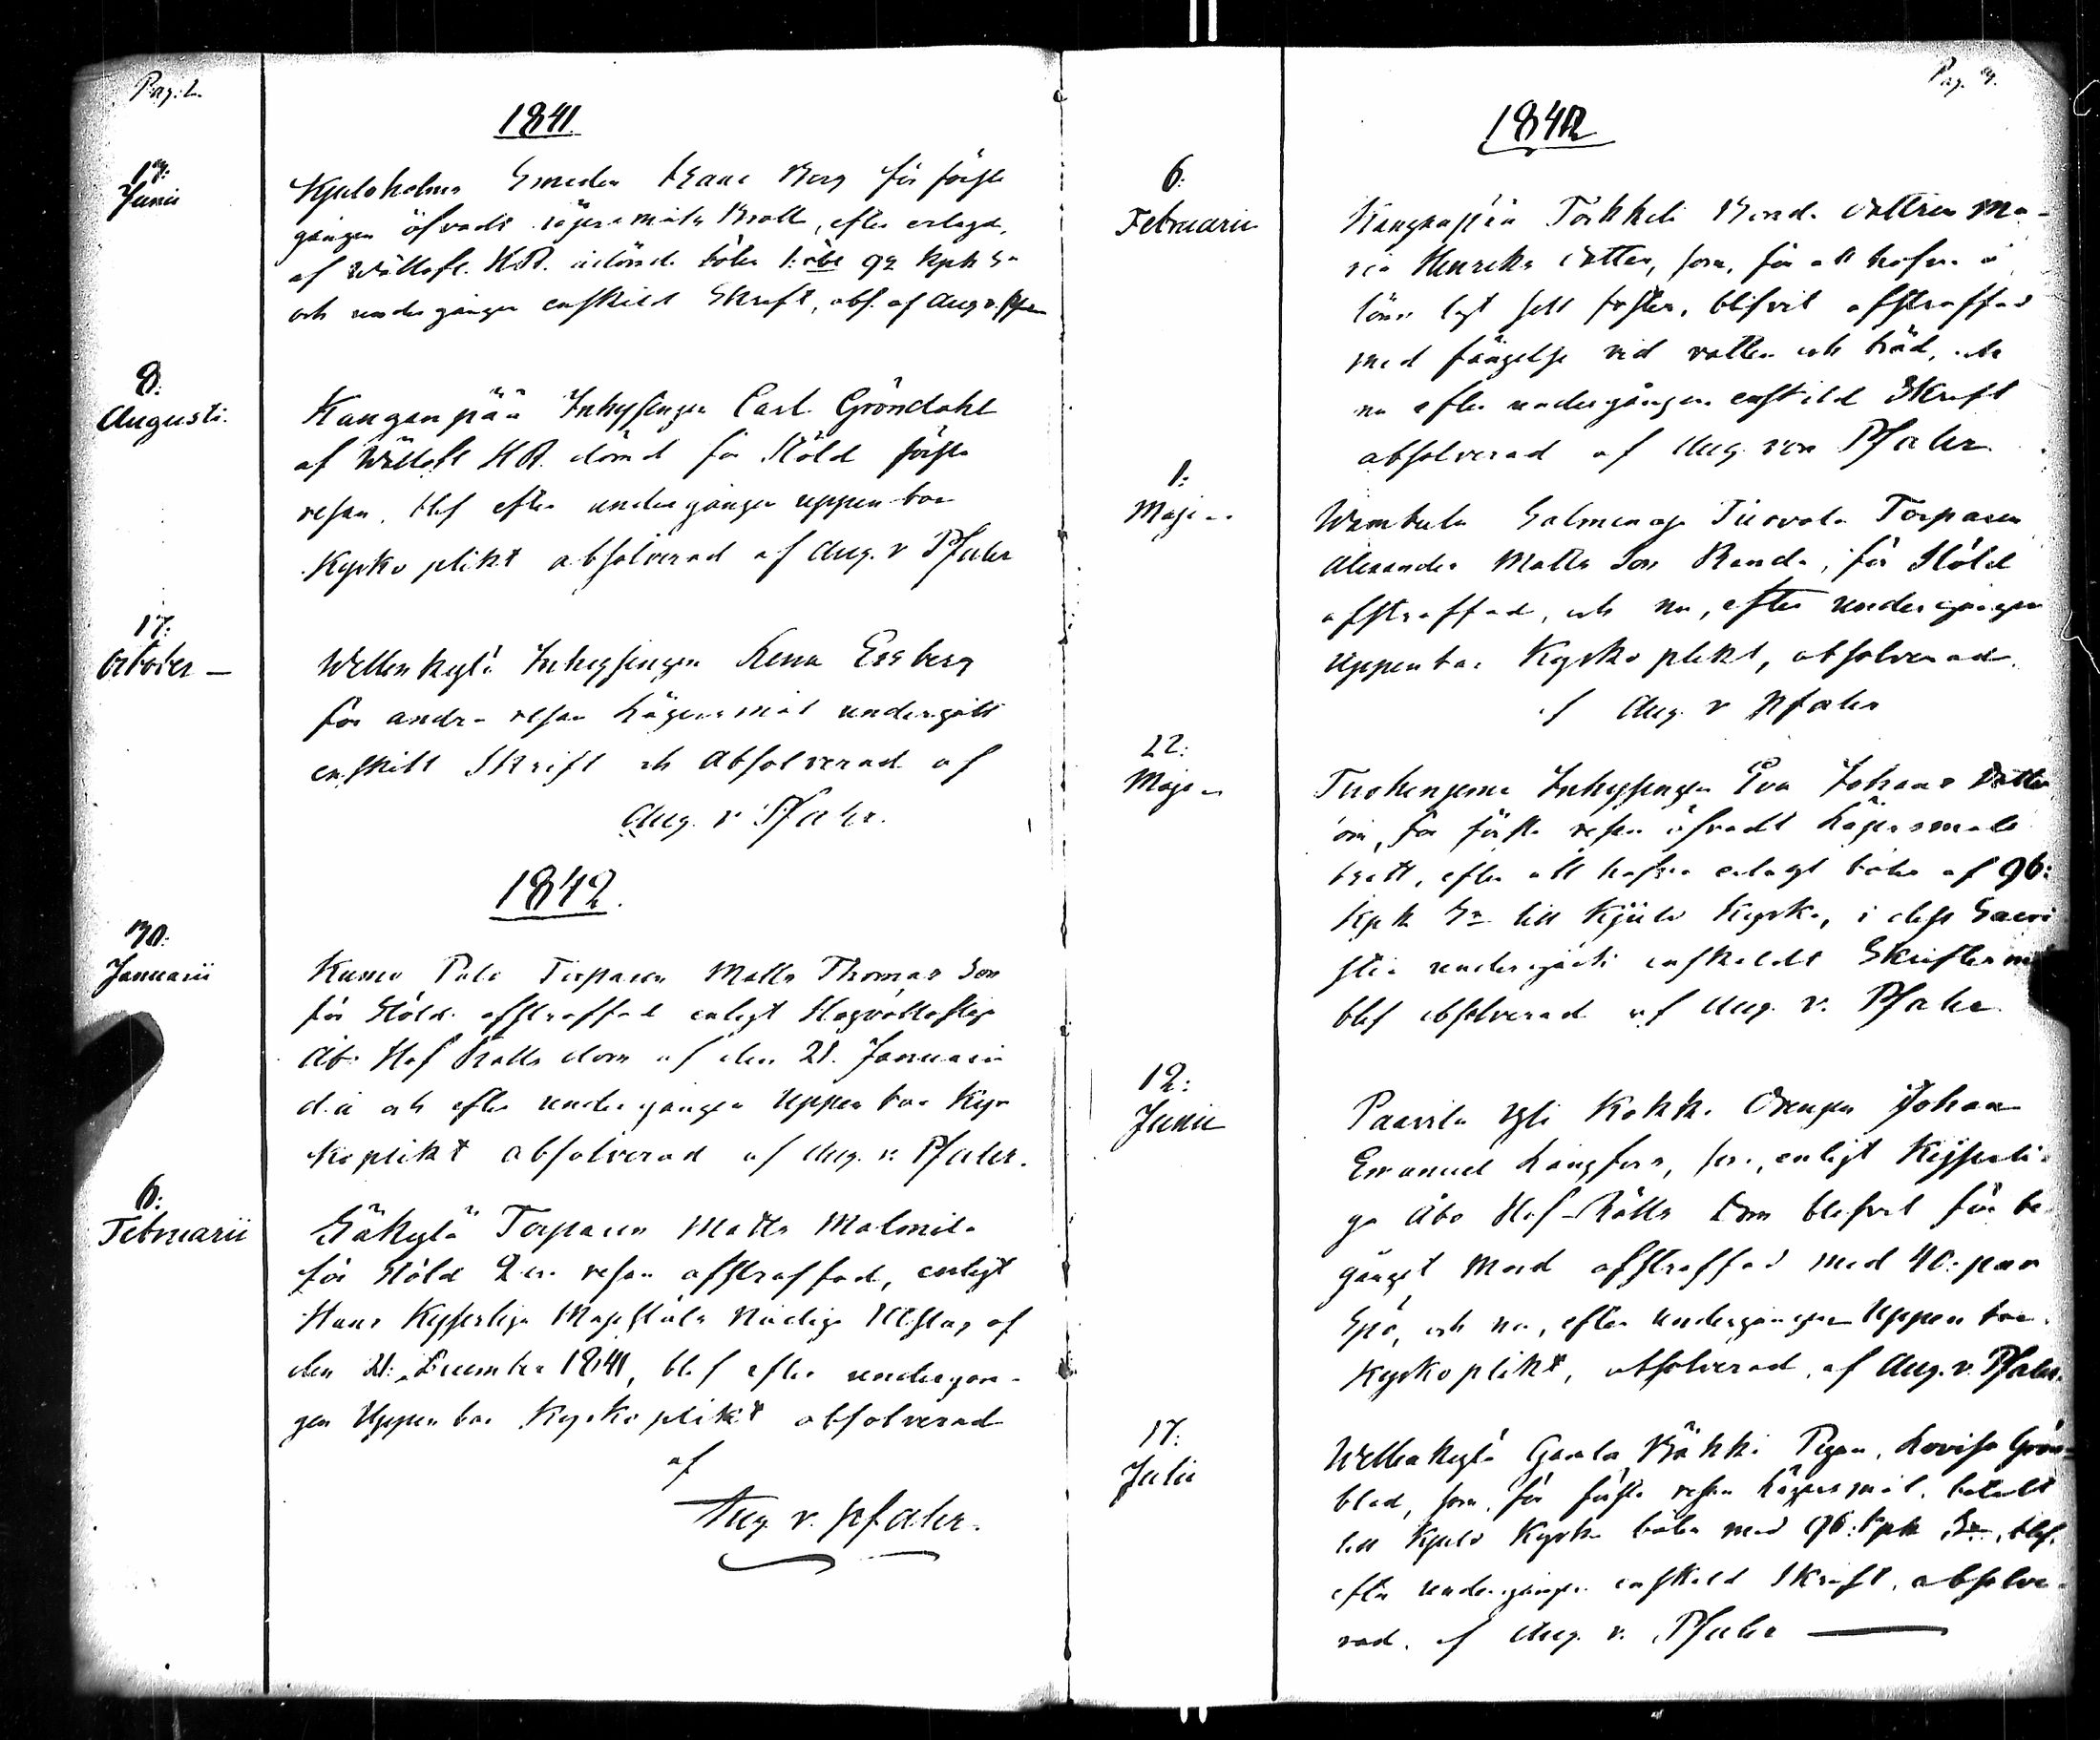 Pag. 2.
1841.
17:
Junii
Kjuloholms Smeden Isaac Berg för första
gången öfvadt lägersmåls Brott, efter erlagde,
af Wällofl. HR. ådömde böter
och undergången enskild Skrift, abs. af Aug. v. Pfaler
8:
Augusti.
Kanganpää Inhysingen Carl Gröndahl
af Wällofl HR. dömd för Stöld första
resan, blef efter undergången uppenbar
Kyrko plikt absolverad af Aug. v Pfaler
17:
October —
Wellenkylä Inhysingen Lena Essberg
för andra resan Lägersmål undergått
enskilt Skrift och Absolverad af
Aug. v. Pfaler.
1842.
30:
Januarii
Kumo Torparen Matts Thomas Son
för Stöld afstraffad enligt Högvällofliga
Åbo Hof Rätts dom af den 21. Januarii
d.å och efter undergången Uppenbar Kyr
koplikt absolverad af Aug. v. Pfaler.
6:
Februarii
Säkylä Torparen Matts Malmila
för Stöld 2dra resan afstraffad, enligt
Hans Kejserliga Majestäts Nådiga Utslag af
den 21. December 1841, blef efter undergån-
gen Uppenbar Kyrko plikt absolverad
af
Aug v. Pfaler.
Pag. 3.
1842
6:
Februarii
Kanganpää Törkkeli Bonde dottren Ma-
ria Henriks dotter, som, för att hafva å
lönn lagt sitt foster, blifvit afstraffad
med fängelse vid vatten och bröd, och
nu efter undergången enskild Skrift
absolverad af Aug. von Pfaler
1:
Maji
Wambula Salmenoja Torparen
Alexander Matts Son Randa, för Stöld
afstraffad, och nu, efter undergången
Uppenbar Kyrko plikt, absolverad
af Aug. v Pfaler
22:
Maji
Inhysingen Eva Johans Dotter
om, för första resan öfvadt Lägersmåls
brott, efter att hafva erlagt böter af 96:
Kpk Sr till Kjulo Kyrka, i dess Sacri
stia undergått enskildt Skriftermål
blef absolverad af Aug. v. Pfaler
12:
Junii
Paavila Kokki Drengen Johan
Emanuel Långfors, som, enligt Kejserli-
ga Åbo Hof-Rätts Dom blifvit för be
gånget Mord afstraffad med 40: par
Spö, och nu, efter undergången Uppenbar
Kyrkoplikt, absolverad af Aug. v. Pfaler.
17:
Julii
Wellenkylä Gamla Bäkki Pigan Lovisa Grön-
blad, som för första resan Lägersmål, betalt
till Kjulo Kyrka böter med 96: kpk Sr, blef
efter undergången enskild Skrift, absolve-
rad af Aug. v. Pfaler